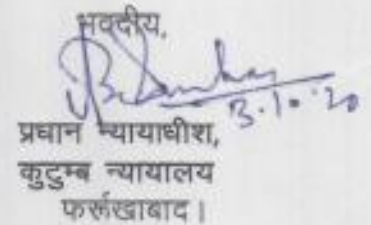 भवदीय,
3.10.20
प्रधान न्यायाधीश,
कुटुम्ब न्यायालय
फर्रूखाबाद।